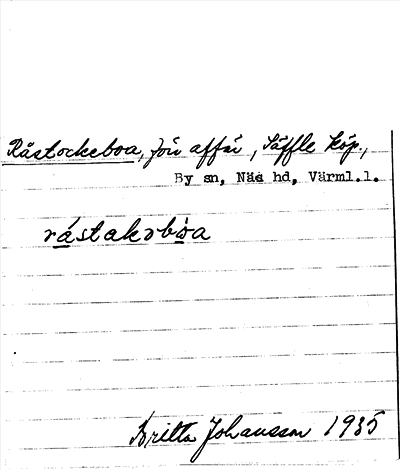 Råstockeboa, förr affär, Säffle köp.,
By sn, Näs hd, Värml.l.
råstakəbòa
Britta Johansson 1935